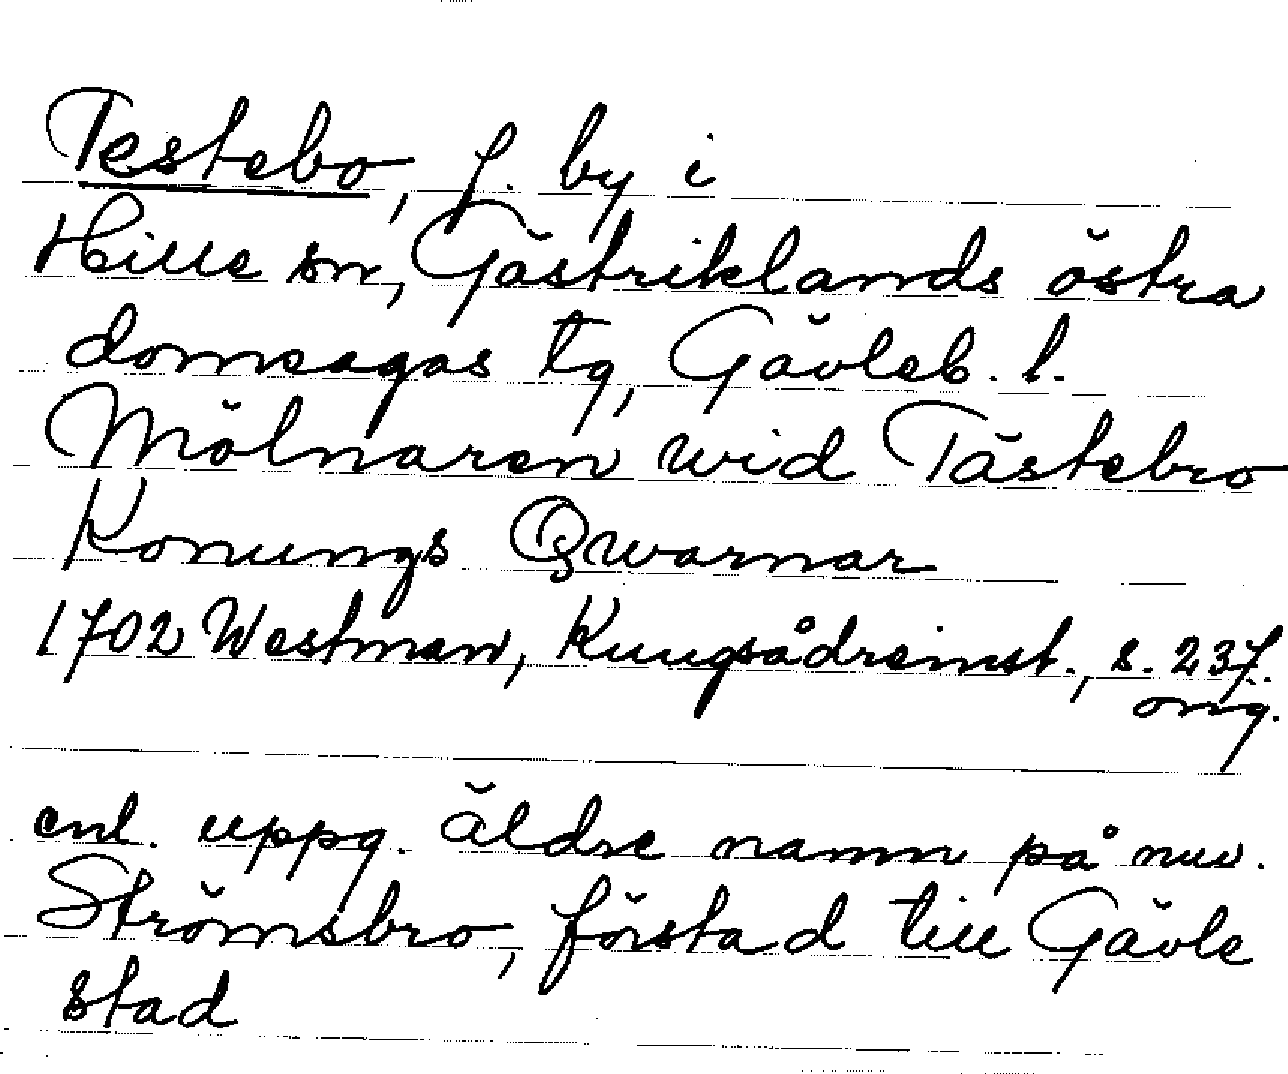 Testebo, f. by i
Hille sn, Gästriklands östra
domsagas tg, Gävleb. l.
Mölnaren wid Tästebro
Konungs Qwarnar
1702 Westman, Kungsådreinst., s. 237.
orig.
enl. uppg. äldre namn på nuv.
Strömsbro, förstad till Gävle
stad